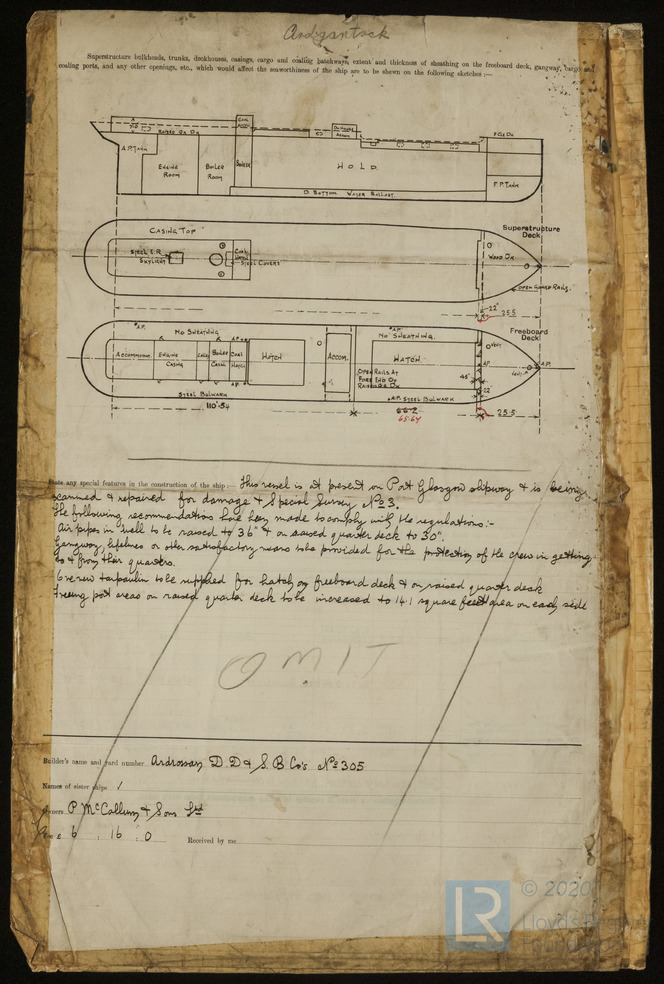 Ardgantock
Superstructure bulkheads, trunks, deckhouses, casings, cargo and coaling hatchways, extent and thickness of sheathing on the freeboard deck, gangway, cargo and
coaling ports, and any other openings, etc., which would affect the seaworthiness of the ship are to be shewn on the following sketches :—
RAISED QR DK
F'CLE DK
A.P. TANK
ENGINE ROOM
BOILER ROOM
HOLD
F.P. TANK
D. BOTTOM WATER BALLAST.
CASING TOP
Superstructure Deck
STEEL E.R SKYLIGHT
STEEL COVERS
WOOD DK
OPEN GUARD RAILS.
22"
25.5
A.P.
NO SHEATHING
A.P.
NO SHEATHING.
Freeboard Deck
A.P.
ACCOMMODN.
ENGINE CASING
BOILER CASING
COAL HATCH
HATCH
ACCOM.
HATCH
OPEN RAILS AT FORE END OF RAISED QR DK
45"
22"
STEEL BULWARK
A.P. STEEL BULWARK
110.54
66.2
65.64
25.5
State any special features in the construction of the ship :— This vessel is at present on Port Glasgow slipway & is being
scanned & repaired for damage & Special Survey No 3.
The following recommendations have been made to comply with the regulations:-
Air pipes in well to be raised to 36" & on raised quarter deck to 30".
Gangway, lifelines or other satisfactory means to be provided for the protection of the crew in getting
to & from their quarters.
new tarpaulin to be supplied for hatch on freeboard deck & on raised quarter deck
Freeing port areas on raised quarter deck to be increased to 14.1 square feet area on each side
OMIT
Builder's name and yard number Ardrossan D.D & S.B Co's No 305
Names of sister ships ✓
Owners P McCallum & Sons Ltd
Fee £ 6 : 16 : 0 Received by me
LR © 2020
Lloyd's Register
Foundation